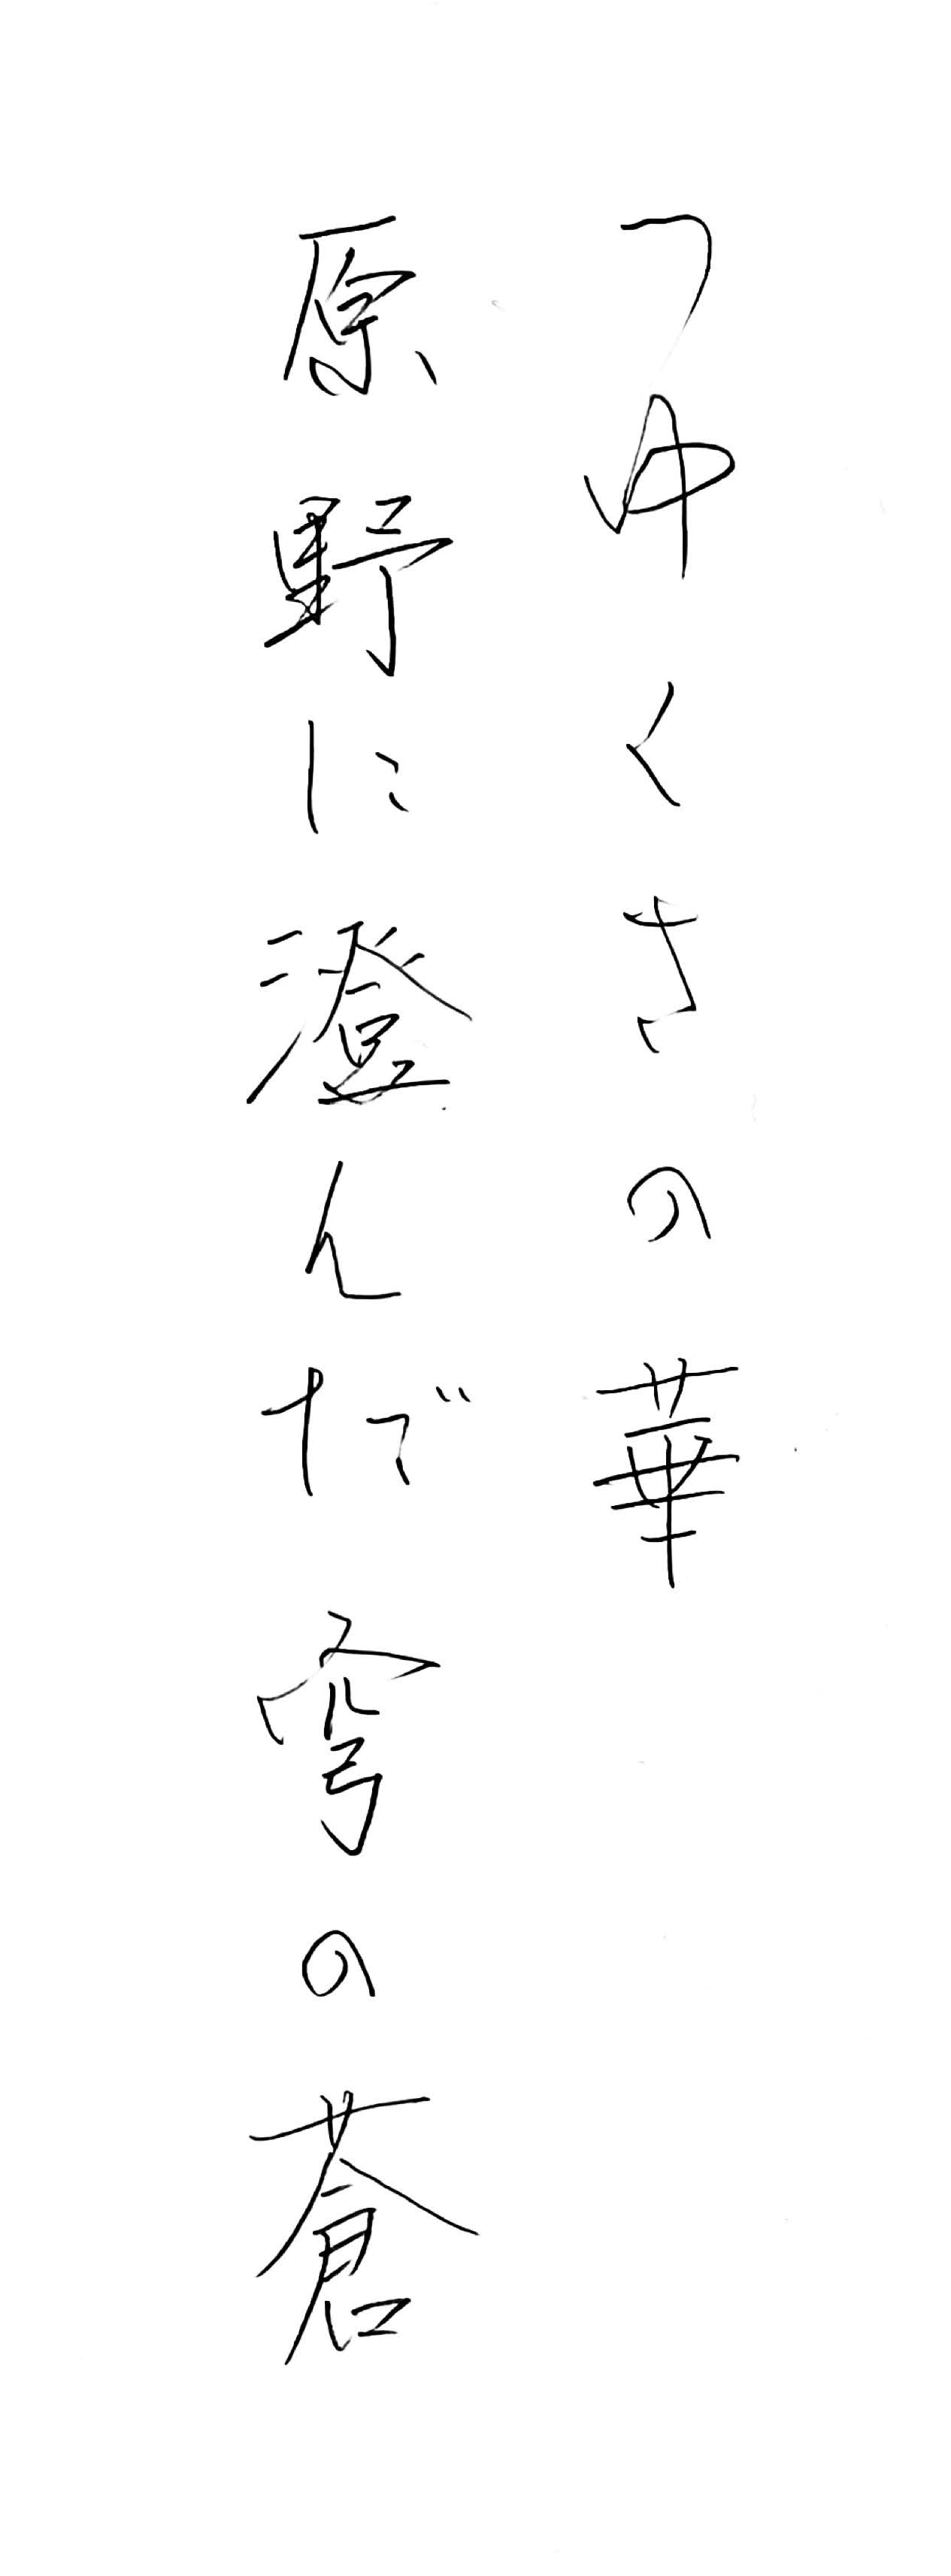 つゆくさの華
原野に澄んだ穹の蒼